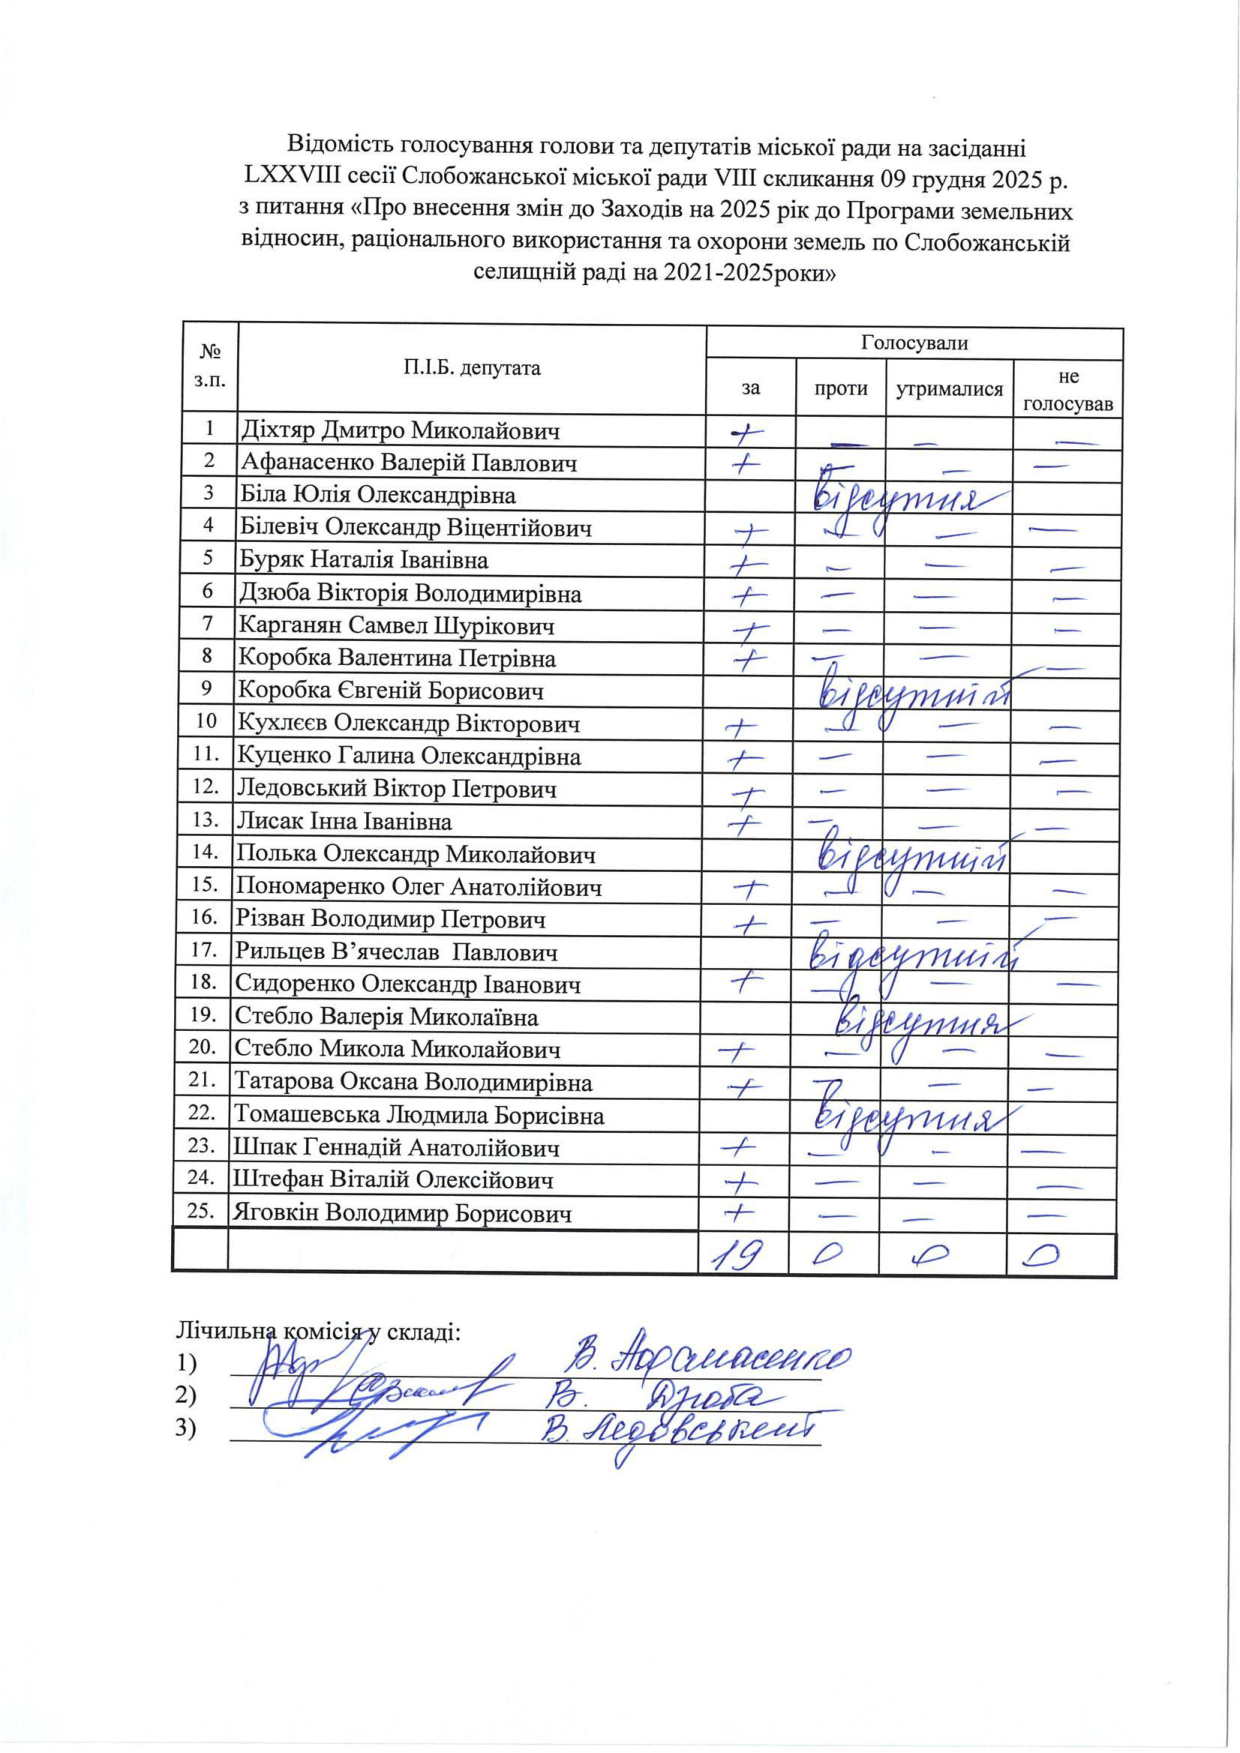 Відомість голосування голови та депутатів міської ради на засіданні
LXXVIII сесії Слобожанської міської ради VIII скликання 09 грудня 2025 р.
з питання «Про внесення змін до Заходів на 2025 рік до Програми земельних
відносин, раціонального використання та охорони земель по Слобожанській
селищній раді на 2021-2025роки»
№ з.п. П.І.Б. депутата Голосували
за проти утрималися не голосував
1 Діхтяр Дмитро Миколайович + — — —
2 Афанасенко Валерій Павлович + — — —
3 Біла Юлія Олександрівна відсутня
4 Білевіч Олександр Віцентійович + — — —
5 Буряк Наталія Іванівна + — — —
6 Дзюба Вікторія Володимирівна + — — —
7 Карганян Самвел Шурікович + — — —
8 Коробка Валентина Петрівна + — — —
9 Коробка Євгеній Борисович відсутній
10 Кухлєєв Олександр Вікторович + — — —
11. Куценко Галина Олександрівна + — — —
12. Ледовський Віктор Петрович + — — —
13. Лисак Інна Іванівна + — — —
14. Полька Олександр Миколайович відсутній
15. Пономаренко Олег Анатолійович + — — —
16. Різван Володимир Петрович + — — —
17. Рильцев В’ячеслав Павлович відсутній
18. Сидоренко Олександр Іванович + — — —
19. Стебло Валерія Миколаївна відсутня
20. Стебло Микола Миколайович + — — —
21. Татарова Оксана Володимирівна + — — —
22. Томашевська Людмила Борисівна відсутня
23. Шпак Геннадій Анатолійович + — — —
24. Штефан Віталій Олексійович + — — —
25. Яговкін Володимир Борисович + — — —
19 0 0 0
Лічильна комісія у складі:
1) В. Афанасенко
2) В. Дзюба
3) В. Ледовський